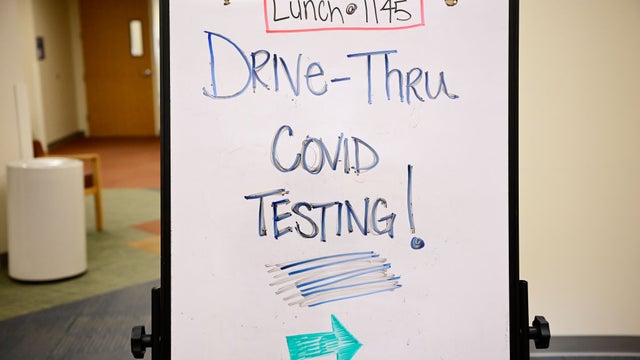 Lunch @ 1145
DRIVE-THRU
COVID
TESTING!